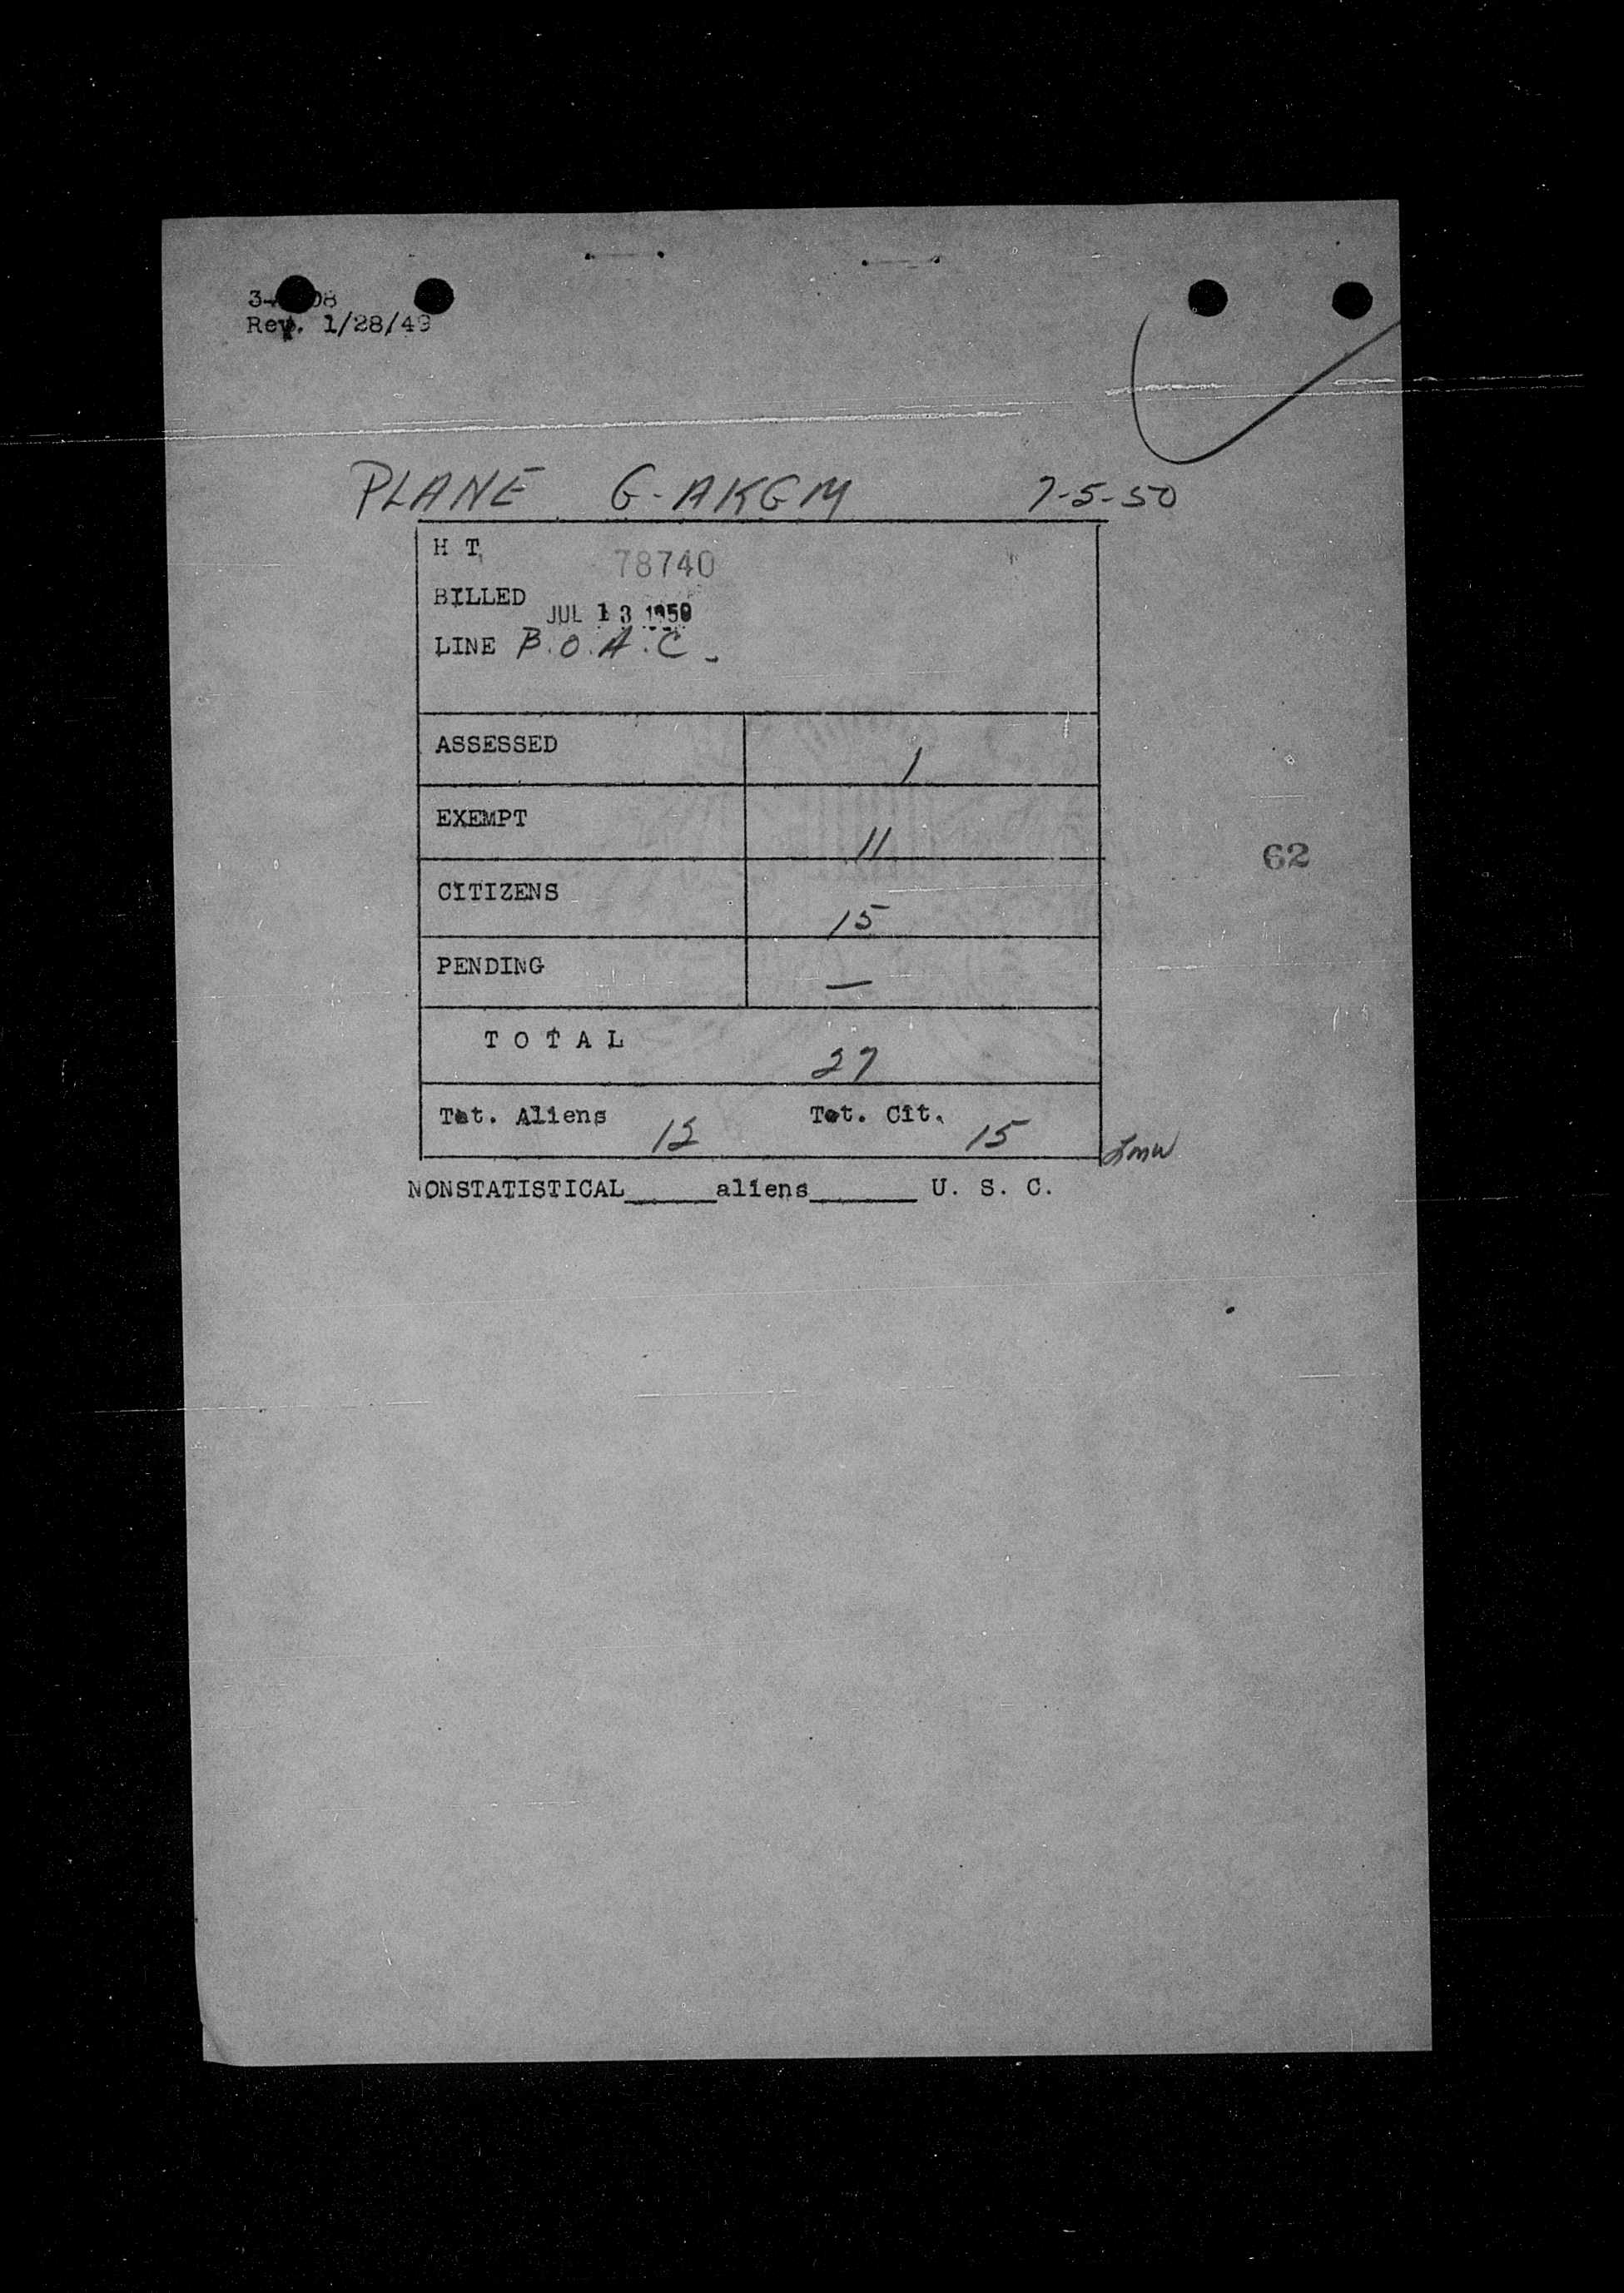 Rev. 1/28/49
PLANE G-AKGM 7-5-50
H T
78740
BILLED
JUL 13 1950
LINE B.O.A.C.
ASSESSED 1
EXEMPT 11
62
CITIZENS 15
PENDING —
TOTAL 27
Tot. Aliens 12 Tot. Cit. 15
NONSTATISTICAL______aliens_______ U. S. C.